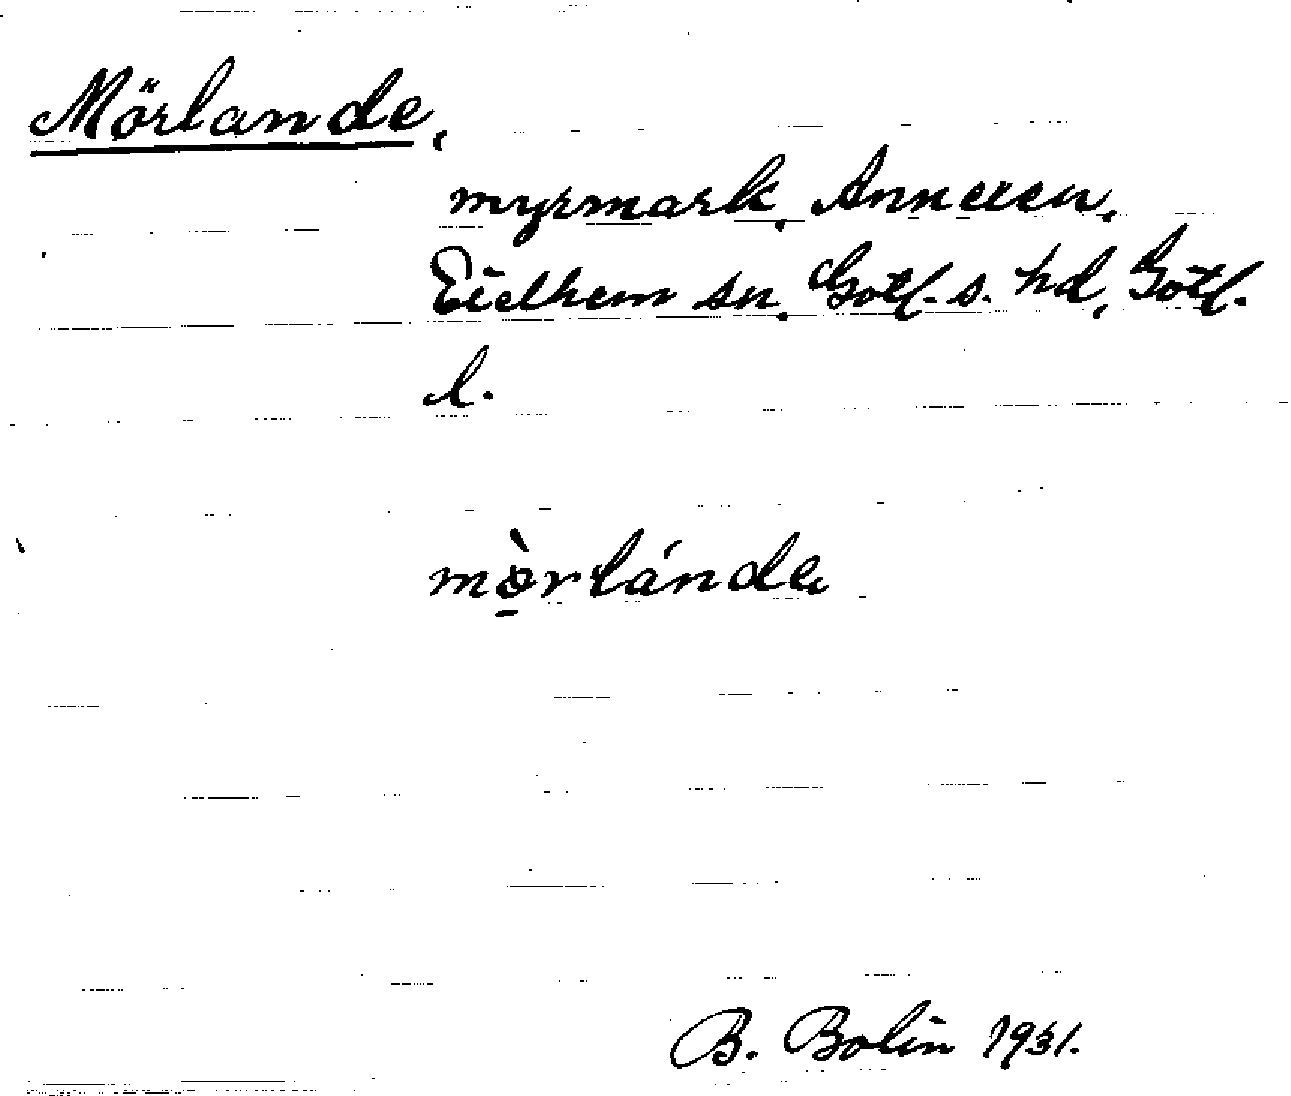 Mörlande,
myrmark, Annexen,
Eidhem sn, Gotl. s. hd, Gotl.
l.
mò̱rlánde
B. Bolin 1931.